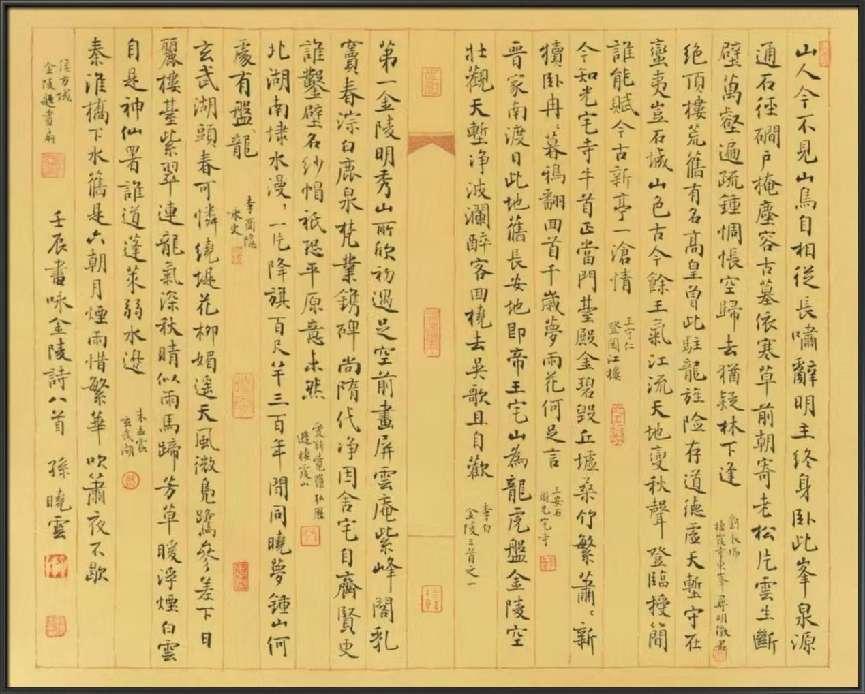 山人今不見山鳥自相從長嘯辭明主終身卧此峯泉源
通石徑磵戶掩塵容古墓依寒草前朝寄老松片雲生斷
壁萬壑遍疏鐘惆悵空歸去猶疑林下逢
劉長卿
棲霞寺東峯尋明徵君
绝頂樓荒舊有名高皇曾此駐龍旌險存道德虛天塹守在
蠻夷豈石城山色古今餘王氣江流天地變秋聲登臨授簡
誰能賦今古新亭一滄情
王守仁
登閱江樓
今知光宅寺牛首正當門臺殿金碧毀丘墟桑竹繁蕭〻新
犢卧冉〻暮鴉翻回首千歲夢雨花何足言
王安石
光宅寺
晉家南渡日此地舊長安地即帝王宅山為龍虎盤金陵空
壯觀天塹净波瀾醉客回橈去吳歌且自歡
李白
金陵三首之一
第一金陵明秀山所欣初遇足空前畫屏雲庵紫峰閣乳
竇春淙白鹿泉梵業鐫碑尚隋代净因舍宅自齊賢史
誰鑿壁名紗帽祇恐平原意未然
愛新覺羅弘曆
遊棲霞山
北湖南埭水漫〻一片降旗百尺竿三百年間同曉夢鍾山何
處有盤龍
李商隱
咏史
玄武湖頭春可憐繞堤花柳媚遥天風微鳧鷖參差下日
麗樓臺紫翠連龍氣深秋晴似雨馬蹄芳草暖浮煙白雲
自是神仙署誰道蓬萊弱水邊
朱孟震
玄武湖
秦淮橋下水舊是六朝月煙雨惜繁華吹簫夜不歇
侯方域
金陵題畫扇
壬辰書咏金陵詩八首 孫曉雲